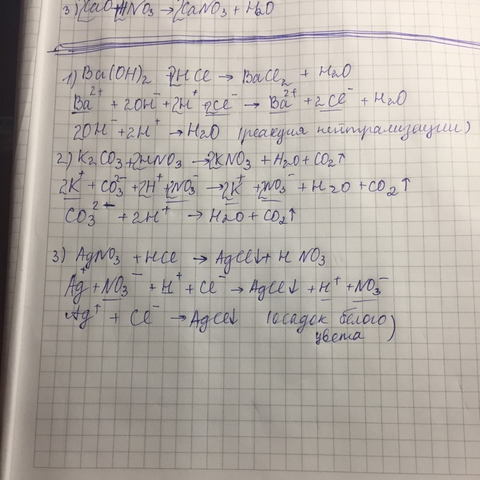 3) CaO + HNO₃ → CaNO₃ + H₂O
1) Ba(OH)₂ 2HCl → BaCl₂ + H₂O
Ba²⁺ + 2OH⁻ + 2H⁺ 2Cl⁻ → Ba²⁺ + 2Cl⁻ + H₂O
2OH⁻ + 2H⁺ → H₂O (реакция нейтрализации)
2) K₂CO₃ + 2HNO₃ → 2KNO₃ + H₂O + CO₂↑
2K⁺ + CO₃²⁻ + 2H⁺ + 2NO₃⁻ → 2K⁺ + 2NO₃⁻ + H₂O + CO₂↑
CO₃²⁻ + 2H⁺ → H₂O + CO₂↑
3) AgNO₃ + HCl → AgCl↓ + HNO₃
Ag⁺ + NO₃⁻ + H⁺ + Cl⁻ → AgCl↓ + H⁺ + NO₃⁻
Ag⁺ + Cl⁻ → AgCl↓ (осадок белого
цвета)